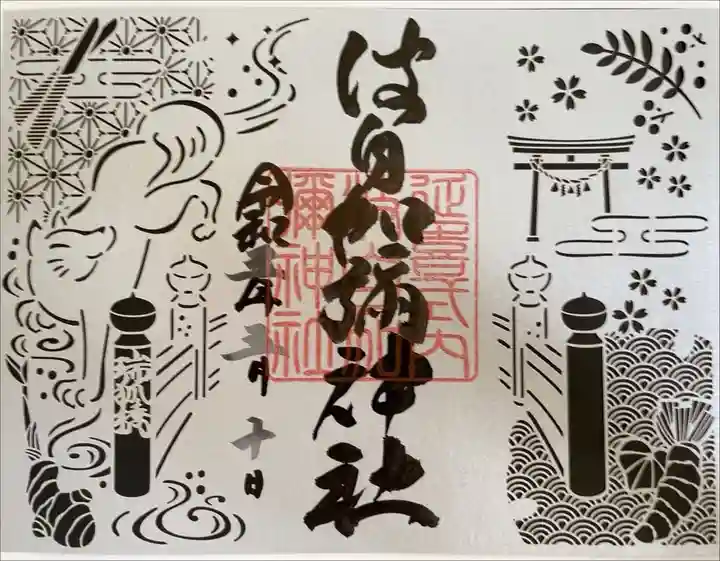 波自加彌神社
延喜式内
波自加
彌神社
令和 年五月十日